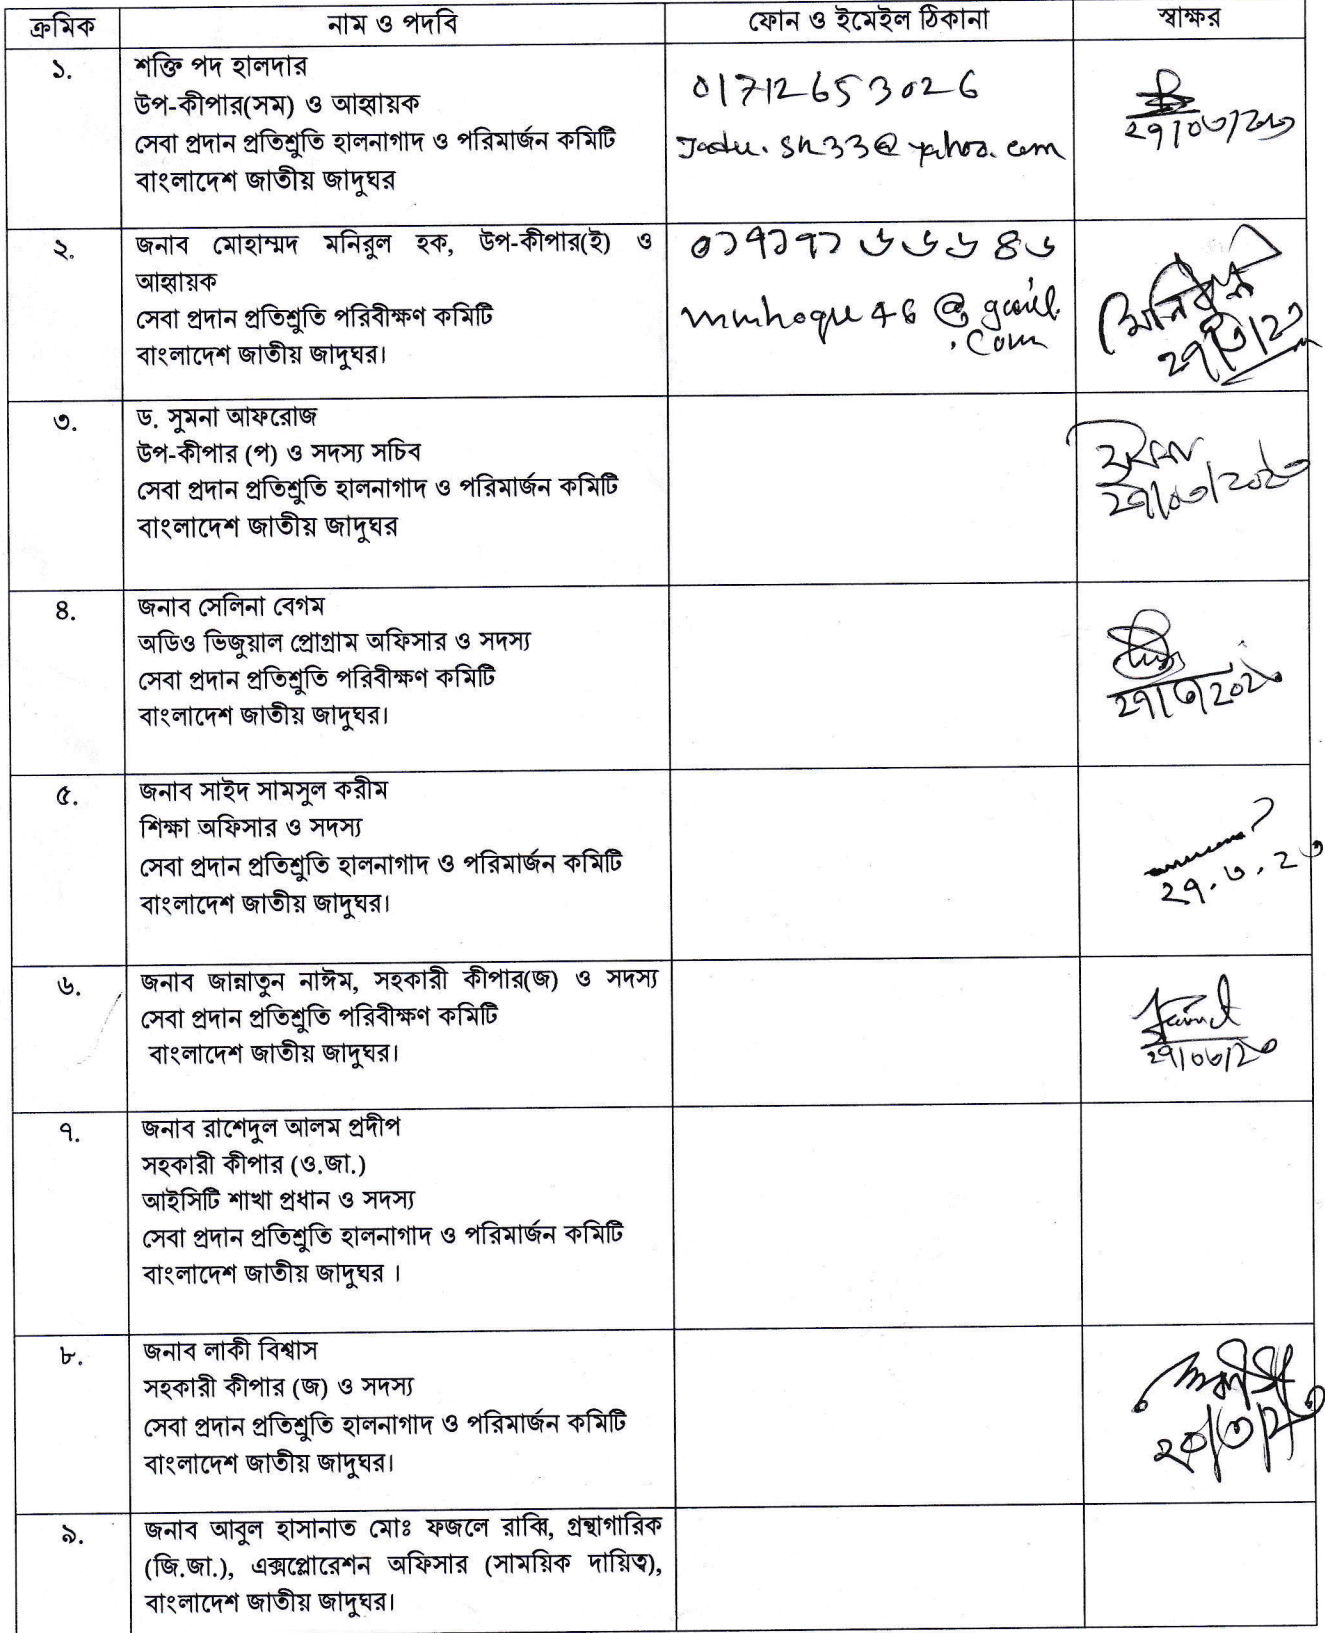 ক্রমিক নাম ও পদবি ফোন ও ইমেইল ঠিকানা স্বাক্ষর
১. শক্তি পদ হালদার 01712653026
উপ-কীপার(সম) ও আহ্বায়ক
সেবা প্রদান প্রতিশ্রুতি হালনাগাদ ও পরিমার্জন কমিটি
বাংলাদেশ জাতীয় জাদুঘর
২. জনাব মোহাম্মদ মনিরুল হক, উপ-কীপার(ই) ও ০১৭১৭৬৬৬৪৬
আহ্বায়ক
সেবা প্রদান প্রতিশ্রুতি পরিবীক্ষণ কমিটি mmhoque46@gmail
বাংলাদেশ জাতীয় জাদুঘর। .com
৩. ড. সুমনা আফরোজ
উপ-কীপার (প) ও সদস্য সচিব
সেবা প্রদান প্রতিশ্রুতি হালনাগাদ ও পরিমার্জন কমিটি
বাংলাদেশ জাতীয় জাদুঘর
৪. জনাব সেলিনা বেগম
অডিও ভিজুয়াল প্রোগ্রাম অফিসার ও সদস্য
সেবা প্রদান প্রতিশ্রুতি পরিবীক্ষণ কমিটি
বাংলাদেশ জাতীয় জাদুঘর।
৫. জনাব সাইদ সামসুল করীম
শিক্ষা অফিসার ও সদস্য
সেবা প্রদান প্রতিশ্রুতি হালনাগাদ ও পরিমার্জন কমিটি
বাংলাদেশ জাতীয় জাদুঘর। ২৭.৩.২৩
৬. জনাব জান্নাতুন নাঈম, সহকারী কীপার(জ) ও সদস্য
সেবা প্রদান প্রতিশ্রুতি পরিবীক্ষণ কমিটি
বাংলাদেশ জাতীয় জাদুঘর। ২৭/০৩/২৩
৭. জনাব রাশেদুল আলম প্রদীপ
সহকারী কীপার (ও.জা.)
আইসিটি শাখা প্রধান ও সদস্য
সেবা প্রদান প্রতিশ্রুতি হালনাগাদ ও পরিমার্জন কমিটি
বাংলাদেশ জাতীয় জাদুঘর ।
৮. জনাব লাকী বিশ্বাস
সহকারী কীপার (জ) ও সদস্য
সেবা প্রদান প্রতিশ্রুতি হালনাগাদ ও পরিমার্জন কমিটি
বাংলাদেশ জাতীয় জাদুঘর।
৯. জনাব আবুল হাসানাত মোঃ ফজলে রাব্বি, গ্রন্থাগারিক
(জি.জা.), এক্সপ্লোরেশন অফিসার (সাময়িক দায়িত্ব),
বাংলাদেশ জাতীয় জাদুঘর।